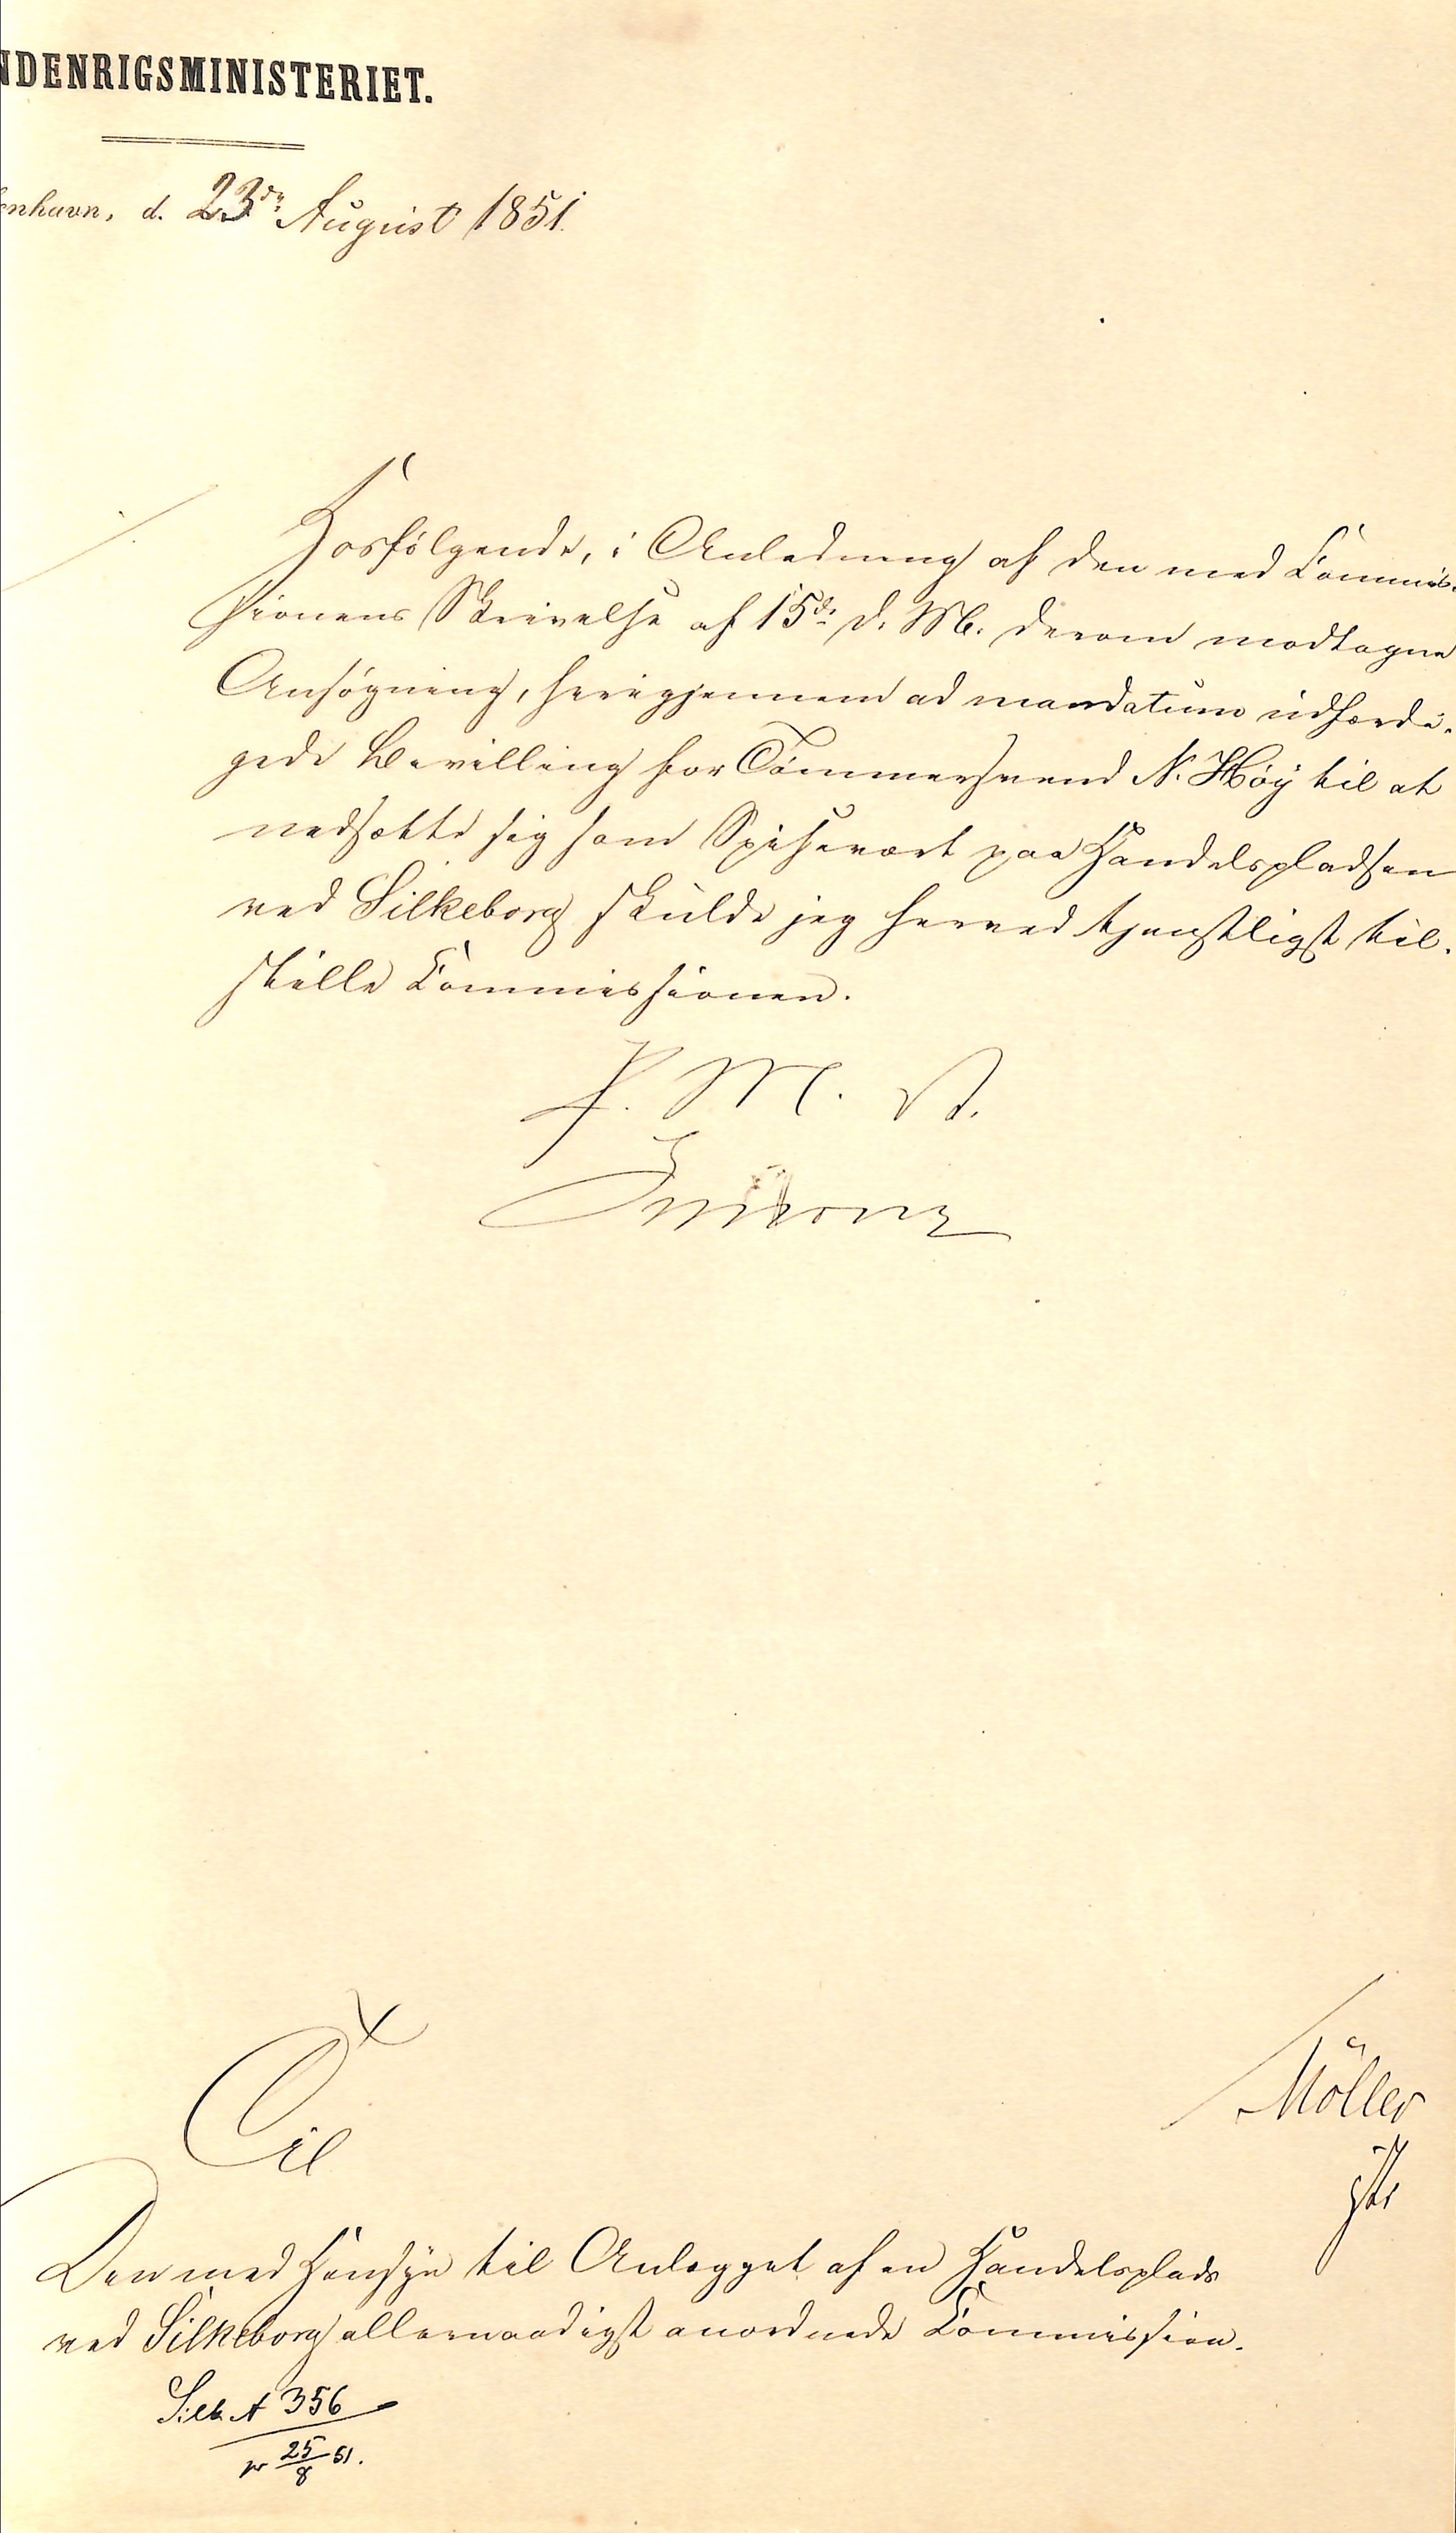 NDENRIGSMINISTERIET.
enhavn, d. 23de August 1851.
Hosfølgende, i Anledning af den med Commis-
sionens Skrivelse af 15de d. M. derom modtagne
Ansøgning, herigjennem ad mandatum udfærdi-
gede Bevilling for Tømmersvend N. Høy til at
nedsætte sig som Spisevært paa Handelspladsen
ved Silkeborg skulde jeg herved tjenstligst til-
stille Commissionen.
P. M. V.
Til
Møller
Den med Hensyn til Anlægget af en Handelsplads
ved Silkeborg allernaadigst anordnede Commission.
Silk. A 356
pr 25/8 51.